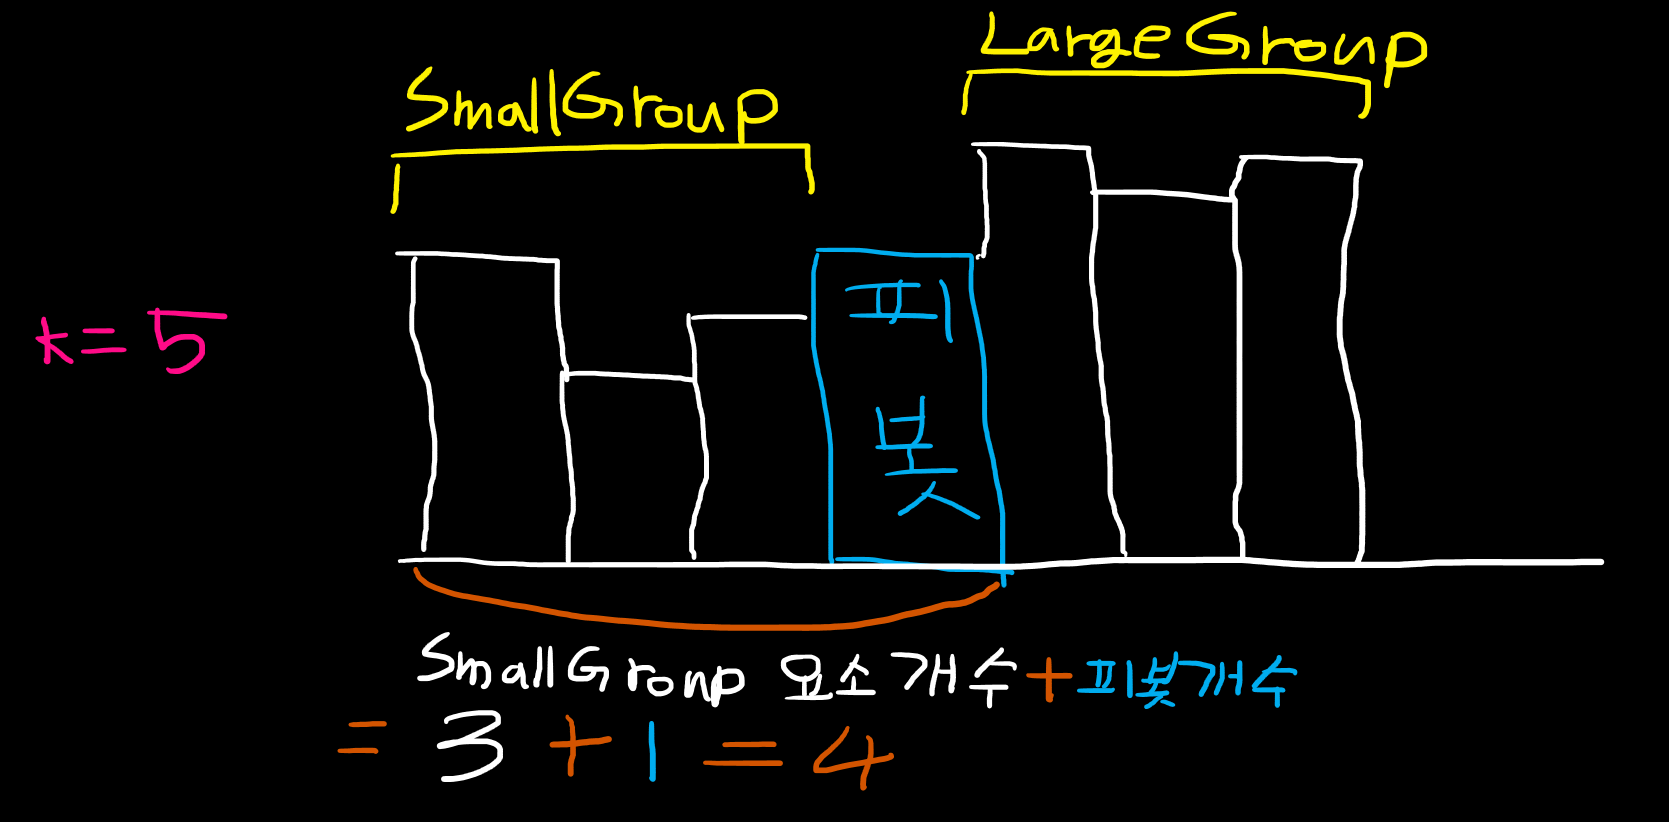 LargeGroup
SmallGroup
k=5
피
봇
SmallGroup 요소개수+피봇개수
= 3 + 1 = 4